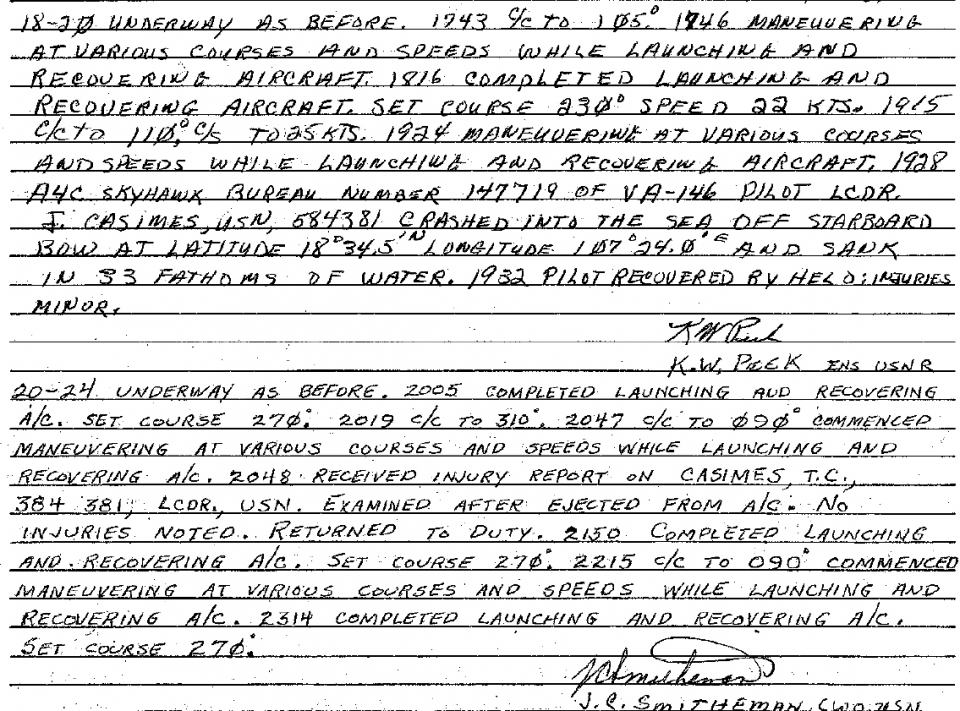 18-20 UNDERWAY AS BEFORE. 1743 C/C TO 105.° 1746 MANEUVERING
AT VARIOUS COURSES AND SPEEDS WHILE LAUNCHING AND
RECOVERING AIRCRAFT. 1816 COMPLETED LAUNCHING AND
RECOVERING AIRCRAFT. SET COURSE 230° SPEED 22 KTS. 1915
C/C TO 110°, C/S TO 25 KTS. 1924 MANEUVERING AT VARIOUS COURSES
AND SPEEDS WHILE LAUNCHING AND RECOVERING AIRCRAFT. 1928
A4C SKYHAWK BUREAU NUMBER 147719 OF VA-146 PILOT LCDR.
T. CASIMES, USN, 584381 CRASHED INTO THE SEA OFF STARBOARD
BOW AT LATITUDE 18°34.5'N LONGITUDE 107°24.0'E AND SANK
IN 33 FATHOMS OF WATER. 1932 PILOT RECOVERED BY HELO; INJURIES
MINOR.
K.W. PEEK ENS USNR
20-24 UNDERWAY AS BEFORE. 2005 COMPLETED LAUNCHING AND RECOVERING
A/C. SET COURSE 270°. 2019 C/C TO 310°. 2047 C/C TO 090° COMMENCED
MANEUVERING AT VARIOUS COURSES AND SPEEDS WHILE LAUNCHING AND
RECOVERING A/C. 2048 RECEIVED INJURY REPORT ON CASIMES, T.C.,
384 381, LCDR., USN. EXAMINED AFTER EJECTED FROM A/C. NO
INJURIES NOTED. RETURNED TO DUTY. 2150 COMPLETED LAUNCHING
AND RECOVERING A/C. SET COURSE 270°. 2215 C/C TO 090° COMMENCED
MANEUVERING AT VARIOUS COURSES AND SPEEDS WHILE LAUNCHING AND
RECOVERING A/C. 2314 COMPLETED LAUNCHING AND RECOVERING A/C.
SET COURSE 270°.
J.C. Smitheman
J.C. SMITHEMAN, CWO, USN